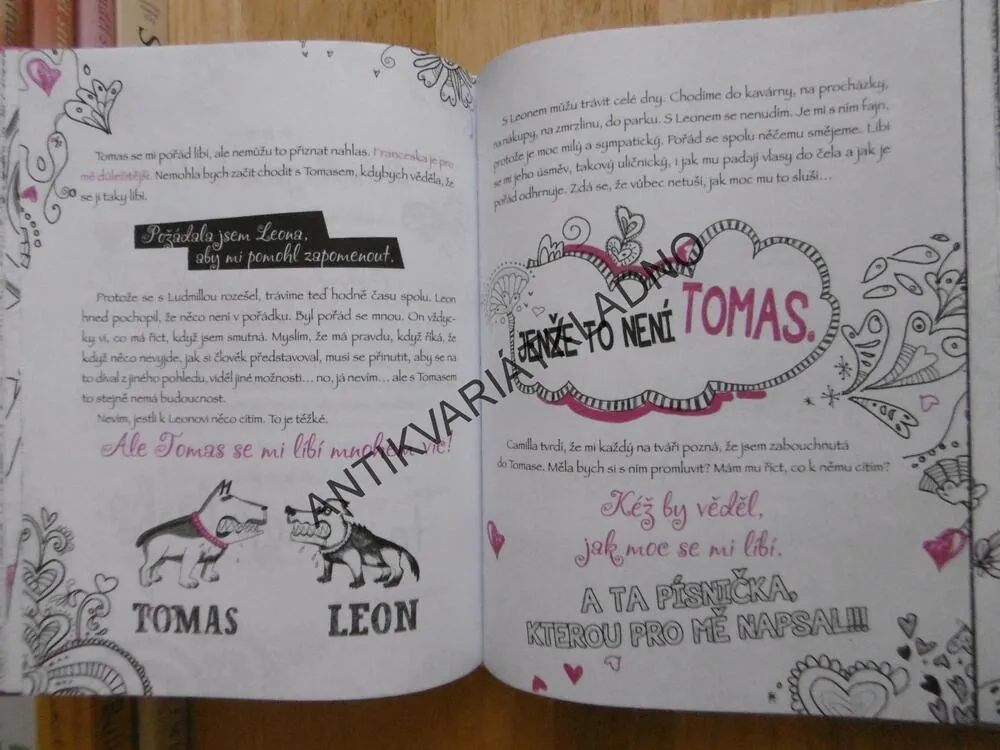 Tomas se mi pořád líbí, ale nemůžu to přiznat nahlas. Francesca je pro
mě důležitější. Nemohla bych začít chodit s Tomasem, kdybych věděla, že
se jí taky líbí.
Požádala jsem Leona,
aby mi pomohl zapomenout.
Protože se s Ludmillou rozešel, trávíme teď hodně času spolu. Leon
hned pochopil, že něco není v pořádku. Byl pořád se mnou. On vždyc-
ky ví, co má říct, když jsem smutná. Myslím, že má pravdu, když říká, že
když něco nevyjde, jak si člověk představoval, musí se přinutit, aby se na
to díval z jiného pohledu, viděl jiné možnosti… no, já nevím… ale s Tomasem
to stejně nemá budoucnost.
Nevím, jestli k Leonovi něco cítím. To je těžké.
Ale Tomas se mi líbí mnohem víc!
TOMAS
LEON
S Leonem můžu trávit celé dny. Chodíme do kavárny, na procházky,
na nákupy, na zmrzlinu, do parku. S Leonem se nenudím. Je mi s ním fajn,
protože je moc milý a sympatický. Pořád se spolu něčemu smějeme. Líbí
se mi jeho úsměv, takový uličnický, i jak mu padají vlasy do čela a jak je
pořád odhrnuje. Zdá se, že vůbec netuší, jak moc mu to sluší…
JENŽE TO NENÍ TOMAS.
Camilla tvrdí, že mi každý na tváři pozná, že jsem zabouchnutá
do Tomase. Měla bych si s ním promluvit? Mám mu říct, co k němu cítím?
Kéž by věděl,
jak moc se mi líbí.
A TA PÍSNIČKA,
KTEROU PRO MĚ NAPSAL!!!
ANTIKVARIÁT KLADNO